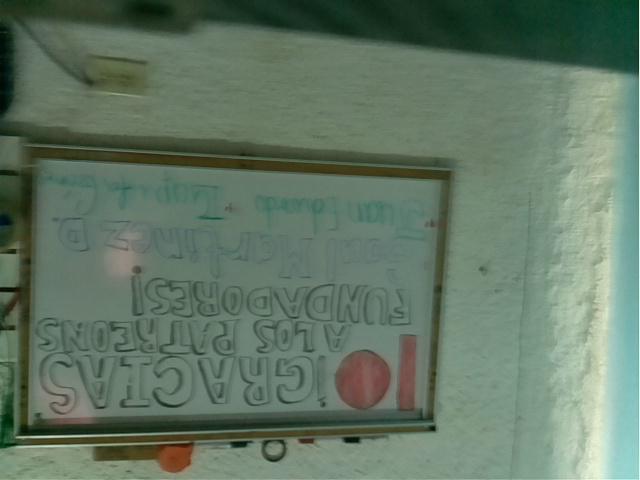 ¡GRACIAS
A LOS PATREONS
FUNDADORES!
Saul Martinez D.
Juan Eduardo +